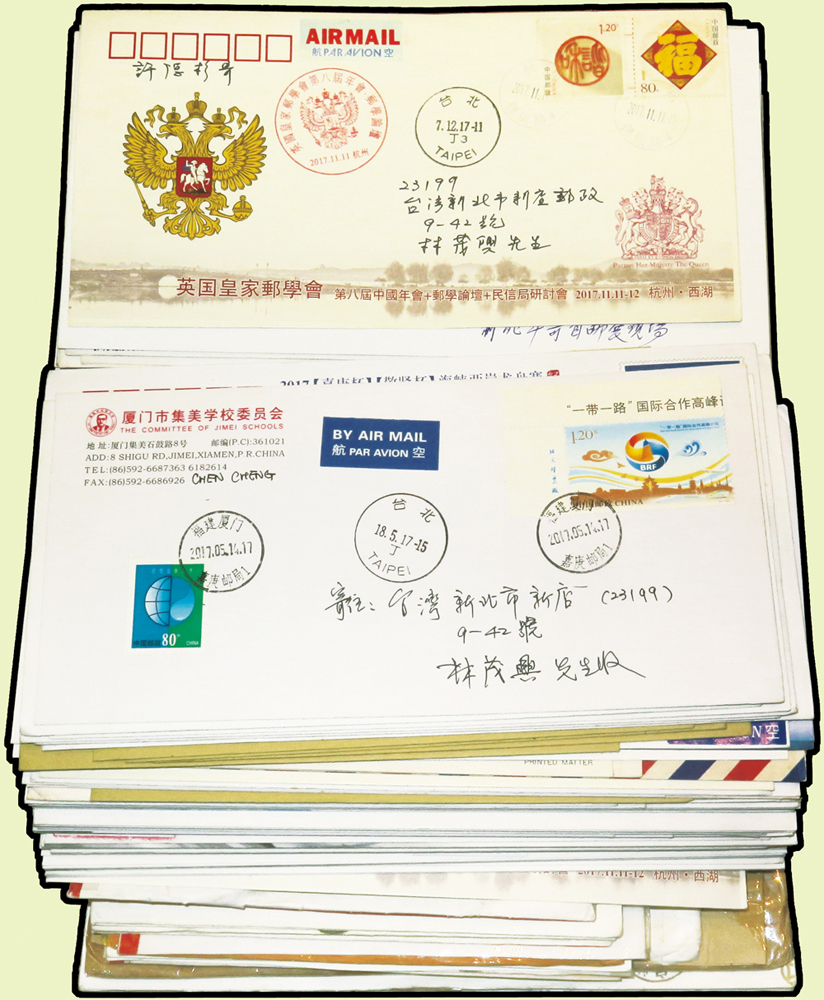 AIRMAIL
航 PAR AVION 空
1.20元
80分
中国邮政
英国皇家郵學會第八屆年會·郵學論壇
2017.11.11 杭州
台北
7.12.17-11
丁3
TAIPEI
23199
台湾新北市新店郵政
9-42號
林茂興先生
英国皇家郵學會 第八屆中國年會+郵學論壇+民信局研討會 2017.11.11-12 杭州·西湖
厦门市集美学校委员会
THE COMMITTEE OF JIMEI SCHOOLS
地 址:厦门集美石鼓路8号 邮编(P.C):361021
ADD: 8 SHIGU RD,JIMEI,XIAMEN,P.R.CHINA
TEL:(86)592-6687363 6182614
FAX:(86)592-6686926 CHEN CHENG
BY AIR MAIL
航 PAR AVION 空
"一带一路"国际合作高峰
1.20元
BRF
CHINA
福建厦门
2017.05.14.17
嘉庚邮局1
台北
18.5.17-15
丁
TAIPEI
福建厦门
2017.05.14.17
嘉庚邮局1
中国邮政 80分 CHINA
寄往:台灣 新北市 新店 (23199)
9-42號
林茂興 先生收
N 空
PRINTED MATTER
2017.11.11-12 杭州·西湖